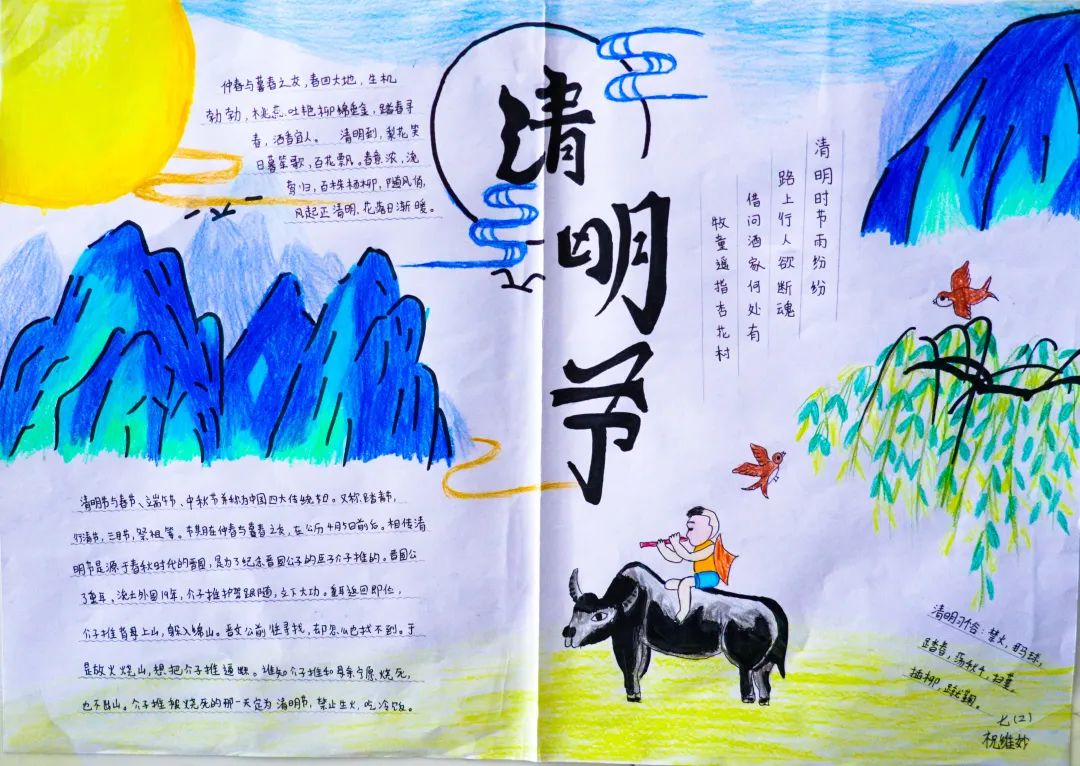 仲春与暮春之交，春回大地，生机
勃勃，桃蕊吐艳柳绵垂金，踏春寻
春，洒香宜人。清明到，梨花笑
日暮笙歌，百花飘。春意浓，浇
有归，百株杨柳，随风俏，
风起正清明，花落日渐暖。
清明节
清明时节雨纷纷
路上行人欲断魂
借问酒家何处有
牧童遥指杏花村
清明节与春节、端午节、中秋节并称为中国四大传统节日。又称踏青节，
行清节，三月节，祭祖节。节期在仲春与暮春之交，在公历4月5日前后。相传清
明节是源于春秋时代的晋国，是为了纪念晋国公子的臣子介子推的。晋国公
子重耳，流亡外国19年，介子推护驾跟随，立下大功。重耳返回即位，
介子推背母上山，躲入绵山。晋文公前往寻找，却怎么也找不到。于
是放火烧山，想把介子推逼出。谁知介子推和母亲宁愿烧死，
也不出山。介子推被烧死的那一天定为清明节，禁止生火，吃冷饭。
清明习俗：禁火，
踏春，荡秋千，扫墓，
插柳，蹴鞠。
七(2)
祝维妙